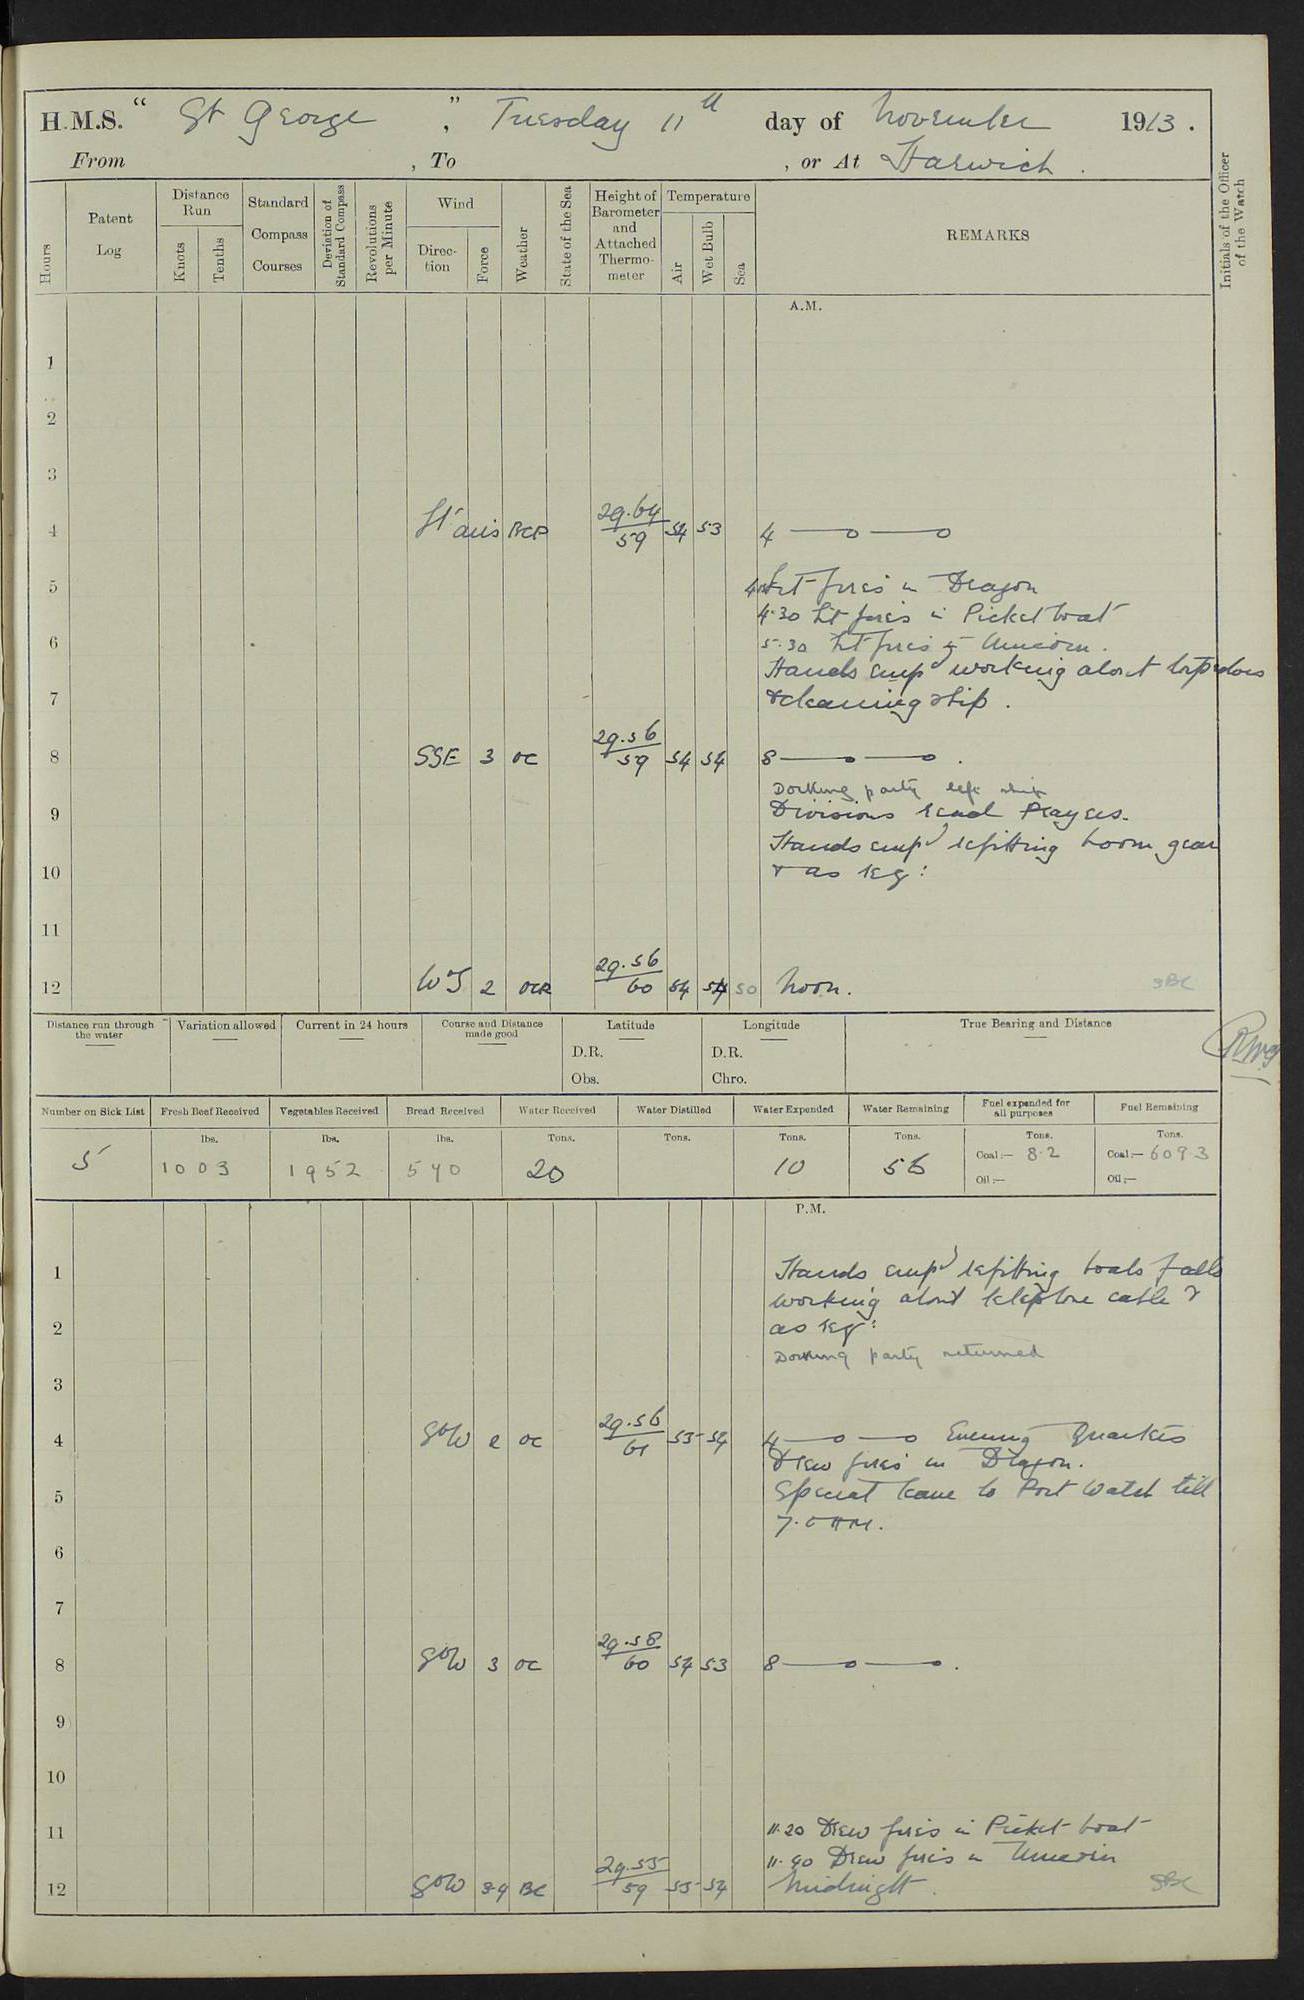 H.M.S. " St George ", Tuesday 11th day of November 1913.
From , To , or At Harwich.
Hours
Patent Log
Distance Run
Knots
Tenths
Standard Compass Courses
Deviation of Standard Compass
Revolutions per Minute
Wind
Direction
Force
Weather
State of the Sea
Height of Barometer and Attached Thermometer
Temperature
Air
Wet Bulb
Sea
REMARKS
Initials of the Officer of the Watch
A.M.
1
2
3
4 St airs BCP 29.64 59 54 53 4 —o—o
5 Lit fires in Dragon
4.30 Lit fires in Picket boat
6 5.30 Lit fires in Unicorn.
Hands empd working about torpedoes
7 & cleaning ship.
8 SSE 3 OC 29.56 59 54 54 8 —o—o.
Docking party left ship
9 Divisions read Prayers.
Hands empd refitting boom gear
10 & as req:
11
12 WS 2 OCR 29.56 60 54 54 50 Noon. SBC
RWG
Distance run through the water
Variation allowed
Current in 24 hours
Course and Distance made good
Latitude
D.R.
Obs.
Longitude
D.R.
Chro.
True Bearing and Distance
Number on Sick List
Fresh Beef Received
Vegetables Received
Bread Received
Water Received
Water Distilled
Water Expended
Water Remaining
Fuel expended for all purposes
Fuel Remaining
lbs. lbs. lbs. Tons. Tons. Tons. Tons. Tons. Tons.
5 1003 1952 540 20 10 56 Coal:— 8.2 Coal:— 609.3
Oil:— Oil:—
P.M.
1 Hands empd refitting boats falls
working about telephone cable &
2 as req:
Docking party returned
3
4 SW 2 OC 29.56 61 53 54 4 —o—o Evening Quarters
Drew fires in Dragon.
5 Special leave to Port Watch till
7.0 AM.
6
7
8 SW 3 OC 29.58 60 54 53 8 —o—o.
9
10
11 11.20 Drew fires in Picket boat
11.40 Drew fires in Unicorn
12 SW 3.4 BC 29.55 59 55 54 Midnight. SBC